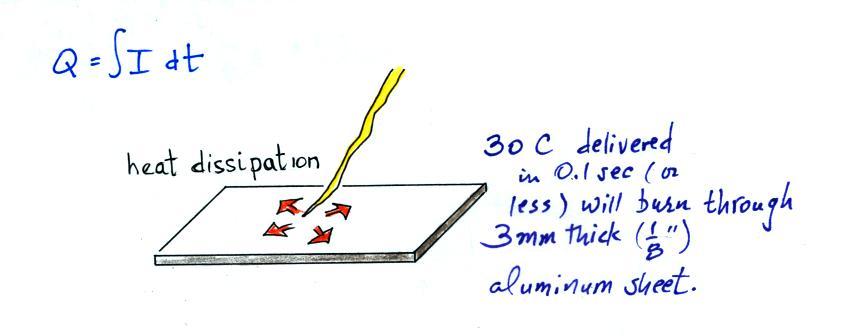 Q = ∫I dt
heat dissipation
30 C delivered
in 0.1 sec (or
less) will burn through
3 mm thick (1/8")
aluminum sheet.